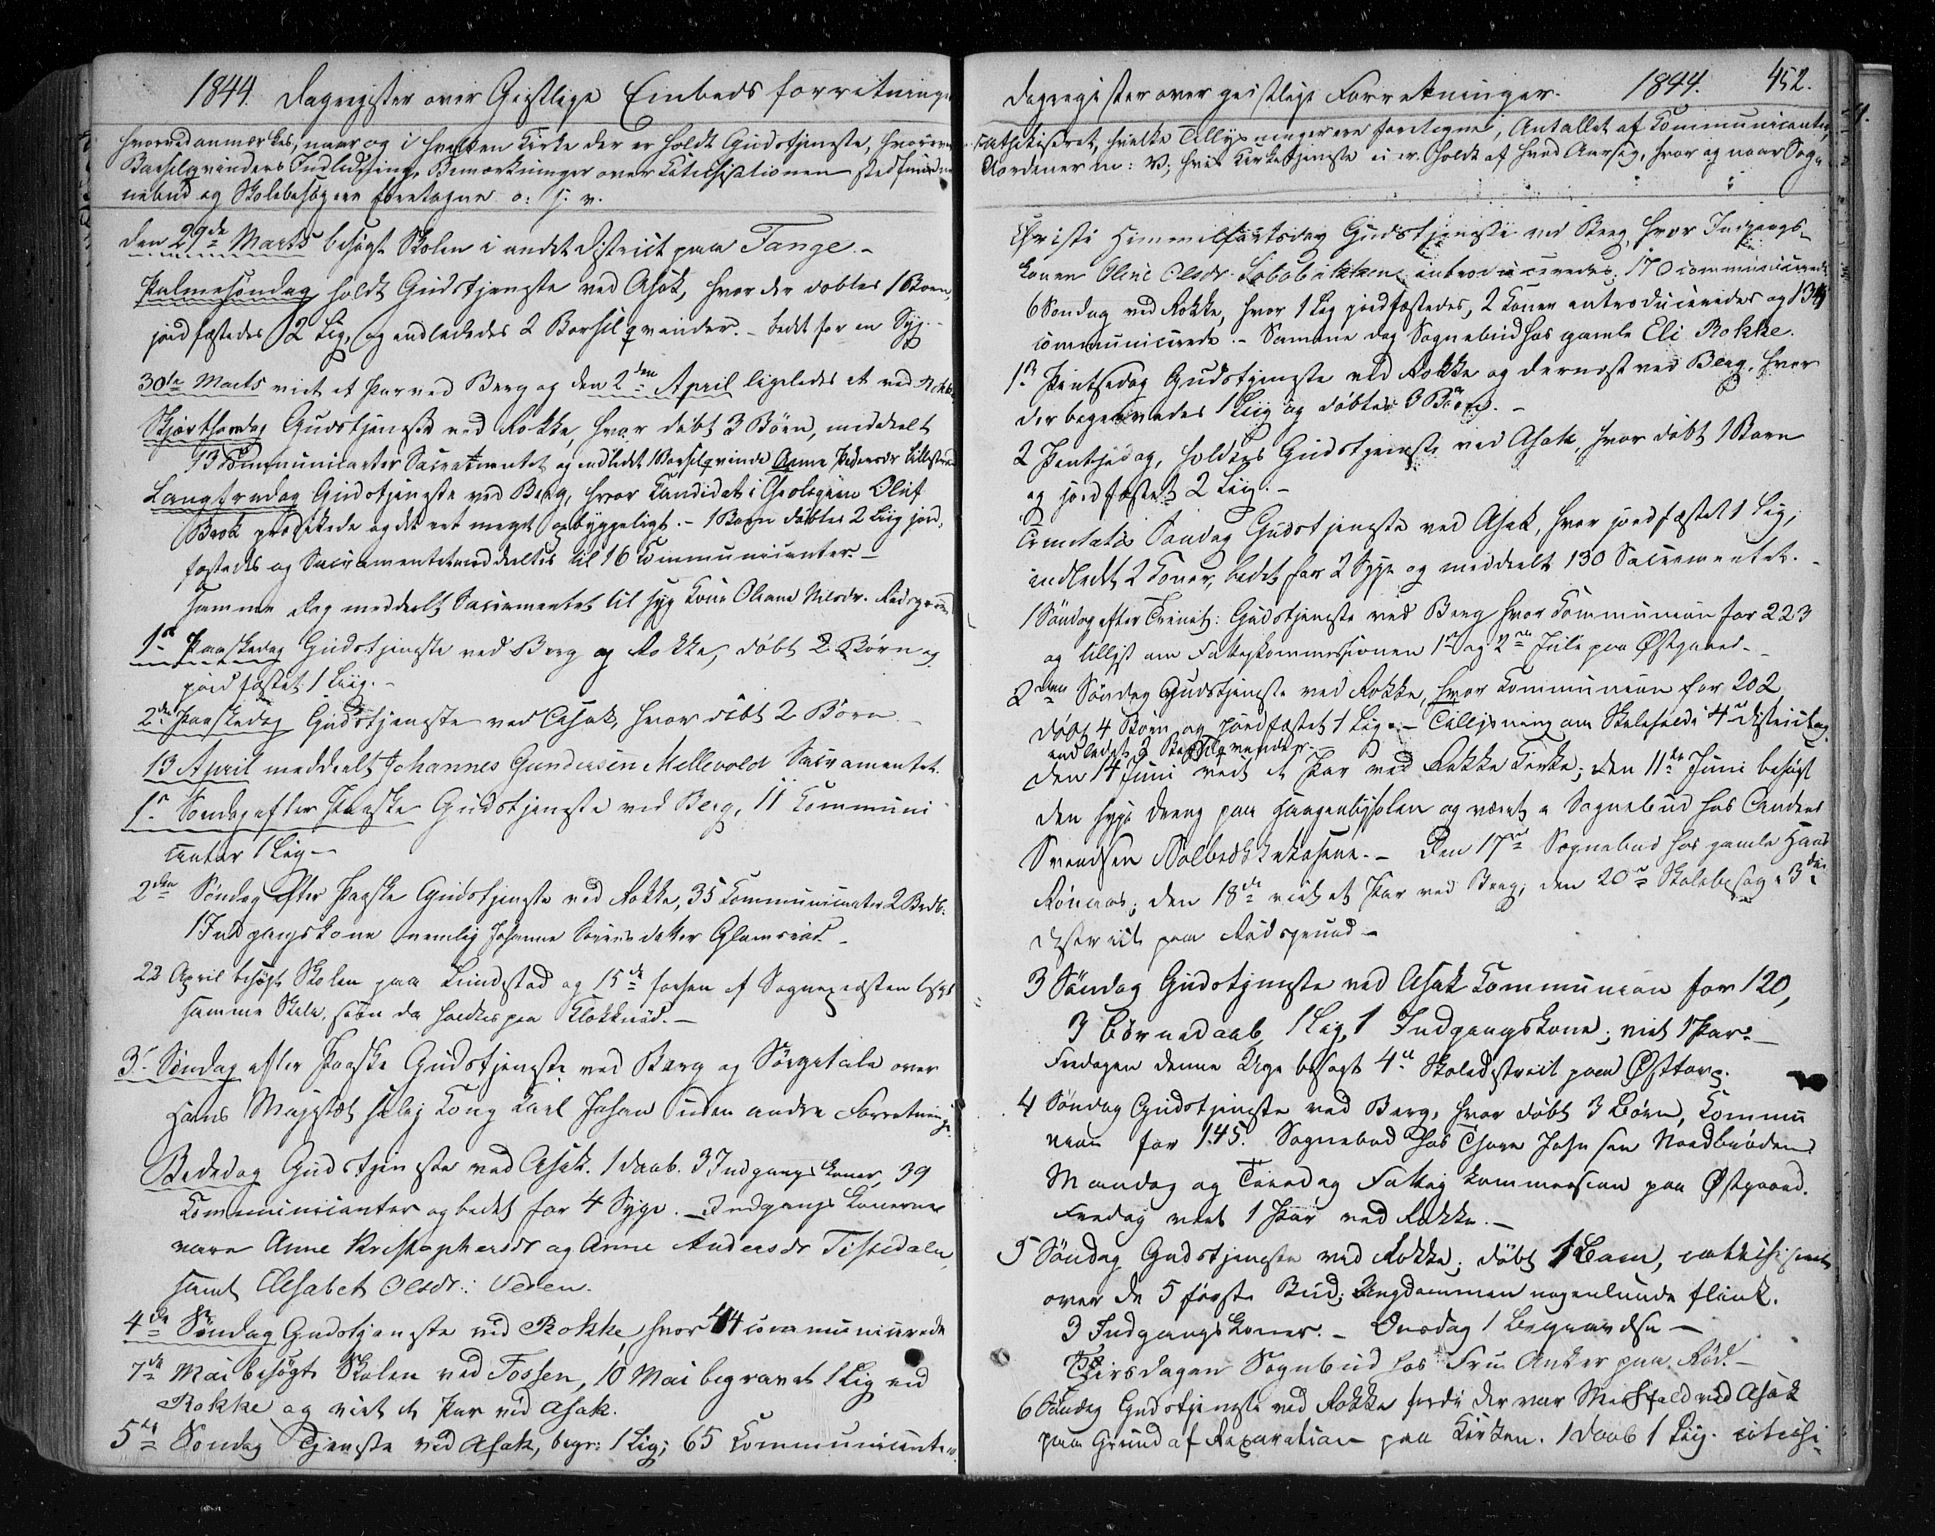 1844. Dagregister over Geistlige Embedsforretninger
hvorved anmærkes, naar og i hvilken Kirke der er holdt Gudstjeneste, hvor
Barselqvinders Indledning, Bemærkninger over Catechisationen
nebud og Skolebesøg ere foretagne o: s: v.
den 27de Marts besøgt Skolen i andet District paa Tange.-
Palmesøndag holdt Gudstjeneste ved Asak, hvor der døbtes 1 Barn,
jordfæstedes 2 Lig, og indledtes 2 Barselqvinder. - bedet for en Syg.-
30te Marts viet et Par ved Berg og den 2den April ligeledes et ved Rokke
Skjærthorsdag Gudstjeneste ved Rokke, hvor døbt 3 Børn, meddeelt
13 Communicanter Sacramentet og indledt 1 Barselqvinde Anne Pedersdr
Langfredag Gudstjeneste ved Berg, hvor Candidat i Theologien Oluf
prædikede og det ret meget opbyggeligt. - 1 Barn døbtes 2 Liig jord-
fæstedes og Sacramentet meddeeltes til 16 Communicanter -
Samme Dag meddeelt Sacramentet til syg Kone Oliane Nilsdr.
1ste Paaskedag Gudstjeneste ved Berg og Rokke, døbt 2 Børn og
jordfæstet 1 Liig. -
2den Paaskedag Gudstjeneste ved Asak, hvor døbt 2 Børn -
13 April meddeelt Johannes Gundersen Mellevold Sacramentet.
1ste Søndag efter Paaske Gudstjeneste ved Berg, 11 Communi
canter 1 Lig -
2den Søndag efter Paaske Gudstjeneste ved Rokke, 35 Communicanter
1 Indgangskone nemlig Johanne Sørensdatter
22 April besøgt Skolen paa Lundestad og 15de forhen af Sognepræsten besøgt
samme Skole, som da holdtes paa Klokkerød. -
3die Søndag efter Paaske Gudstjeneste ved Berg og Sørgetale over
Hans Majestæt salig Kong Carl Johan uden andre Forretninger.
Bededag Gudstjeneste ved Asak. 1 Daab. 3 Indgangskoner, 39
Communicanter og bedet for 4 Syge. - Indgangskonerne
vare Anne Kristophersdr og Anne Andersdr Tistedalen,
samt Elisabet Olsdr: Veden.
4de Søndag Gudstjeneste ved Rokke, hvor 44 communicerede
7de Mai besøgt Skolen ved Fossen, 10 Mai begravet 1 Lig ved
Rokke og viet et Par ved Asak.
5te Søndag Tjeneste ved Asak, begr: 1 Lig; 65 Communicanter
Dagregister over geistlige Forretninger. 1844. 452.
catechiseret, hvilke Tillysninger ere foretagne, Antallet af Communicanter,
hvis Kirketjeneste ei er holdt af hvad Aarsag, hvor og naar Sog-
Christi Himmelfartsdag Gudstjeneste ved Berg, hvor Indgangs-
konen Oline Olsdr. introduceredes; 170 communicerede
6 Søndag ved Rokke, hvor 1 Lig jordfæstedes, 2 Koner introduceredes og
communicerede. - Samme dag Sognebud hos gamle Eli Rokke.
1ste Pintsedag Gudstjeneste ved Rokke og dernæst ved Berg, hvor
der begravedes 1 Liig og døbtes 3 Børn. -
2 Pintsedag, holdtes Gudstjeneste ved Asak, hvor døbt 1 Barn
og jordfæstet 2 Liig. -
Trinitatis Søndag Gudstjeneste ved Asak, hvor jordfæstet 1 Lig,
indledt 2 Koner, bedet for 2 Syge og meddeelt 130 Sacramentet. -
1 Søndag efter Trinit: Gudstjeneste ved Berg hvor Communion for 223
og tillyst om Fattigkommissionen 1ste og 2den Julii paa Østgaard. -
2den Søndag Gudstjeneste ved Rokke, hvor Communion for 202
døbt 4 Børn og jordfæstet 1 Lig. - Tillysning om Skolehold i 4de District og
indledet 3 Barselqvinder.
den 14 Juni viet et Par ved Rokke Kirke; den 11te Juni besøgt
den syge Dreng paa og været i Sognebud hos Anders
Svendsen - Den 17de Sognebud hos gamle Hans
den 18de viet et Par ved Berg; den 20de Skolebesøg i 3die
District paa Rødsgrund -
3 Søndag Gudstjeneste ved Asak Communion for 120,
3 Børnedaab 1 Lig, 1 Indgangskone; viet 1 Par. -
Fredagen denne Uge besøgt 4de Skoledistrict paa Østtorp.
4 Søndag Gudstjeneste ved Berg, hvor døbt 3 Børn, Commu
nion for 145. Sognebud hos Thore Johnsen
Mandag og Tirsdag Fattigkommission paa Østgaard.
Fredag viet 1 Par ved Rokke. -
5 Søndag Gudstjeneste ved Rokke; døbt 1 Barn, catechiseret
over de 5 første Bud; Ungdommen nogenlunde flink.
3 Indgangskoner. - Onsdag 1 Begravelse -
Tirsdagen Sognebud hos Fru Anker paa Rød. -
6 Søndag Gudstjeneste ved Rokke fordi der var Messefald ved Asak
paa Grund af Reparation paa Kirken. 1 Daab 1 Liig. catechi-